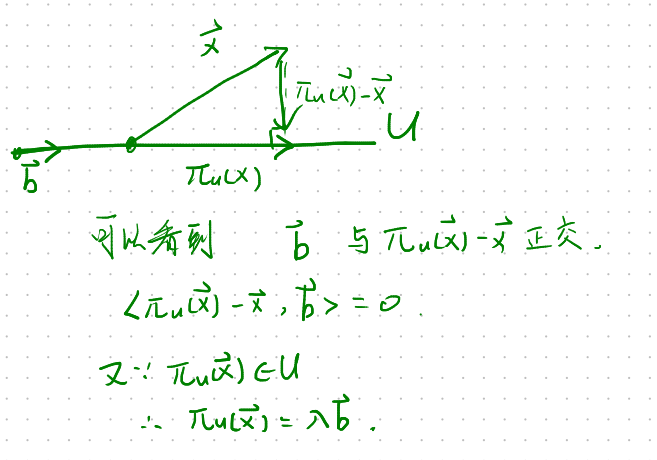 x⃗
π_u(x⃗)-x⃗
U
b⃗
π_u(x)
可以看到 b⃗ 与 π_u(x⃗)-x⃗ 正交.
<π_u(x⃗)-x⃗, b⃗> = 0.
又∵ π_u(x⃗)∈U
∴ π_u(x⃗) = λb⃗.